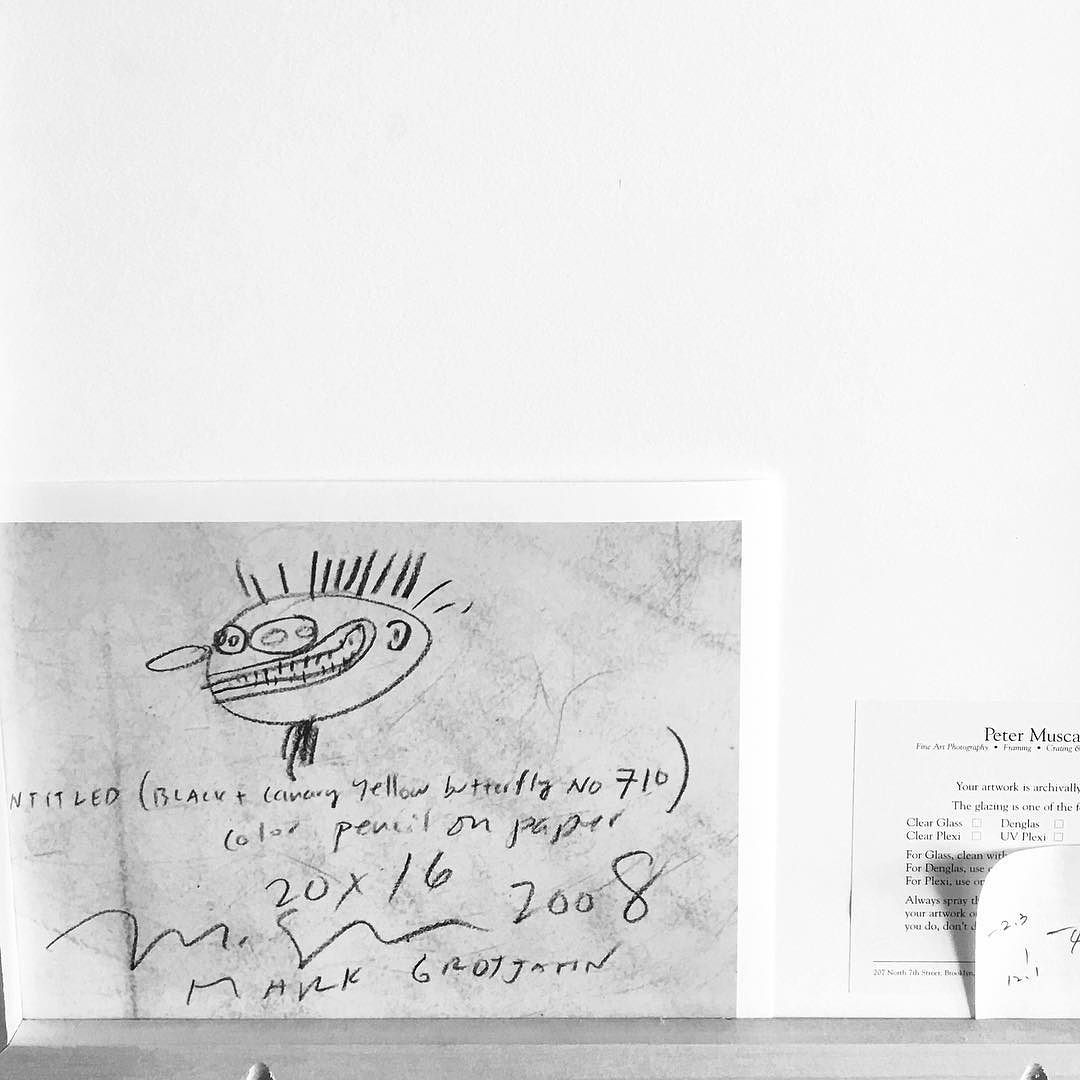 NTITLED (BLACK + Canary Yellow butterfly No 710)
Color pencil on paper
20 x 16
2008
MARK GROTJAHN
Peter Musca
Fine Art Photography • Framing • Crating &
Your artwork is archivally
The glazing is one of the f
Clear Glass Denglas
Clear Plexi UV Plexi
For Glass, clean with
For Denglas, use
For Plexi, use
Always spray th
your artwork
you do, don't d
207 North 7th Street, Brooklyn,
-2.3